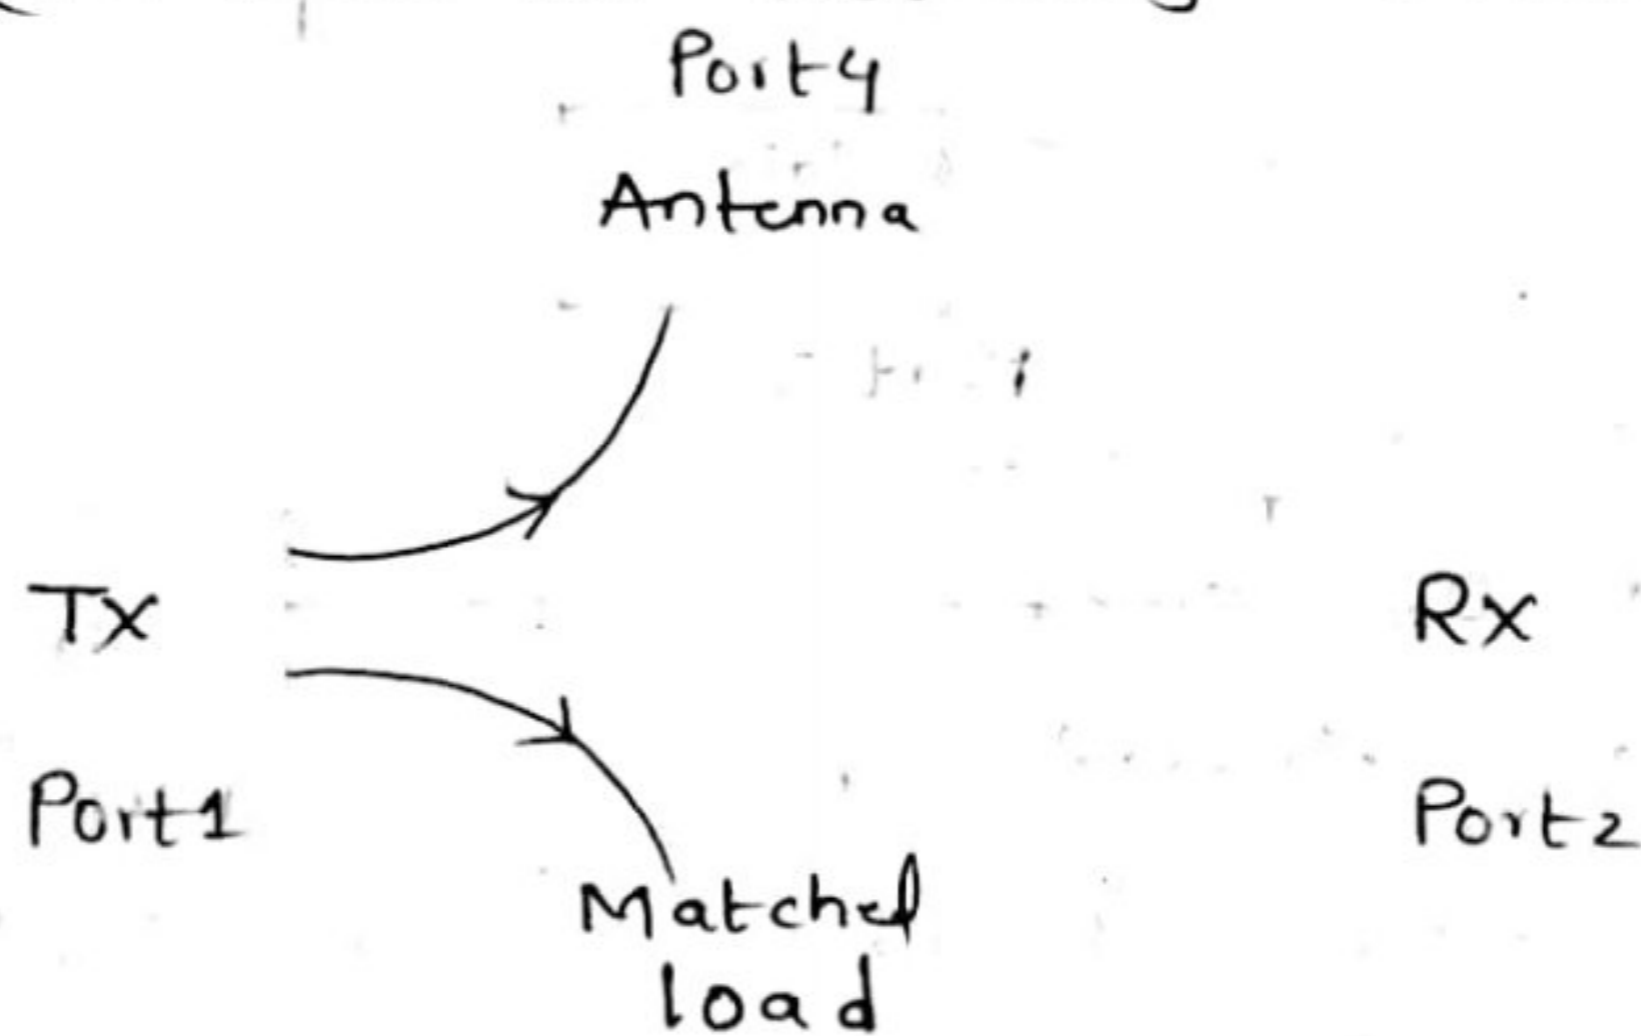 Port4
Antenna
Tx
Rx
Port1
Port2
Matched
load